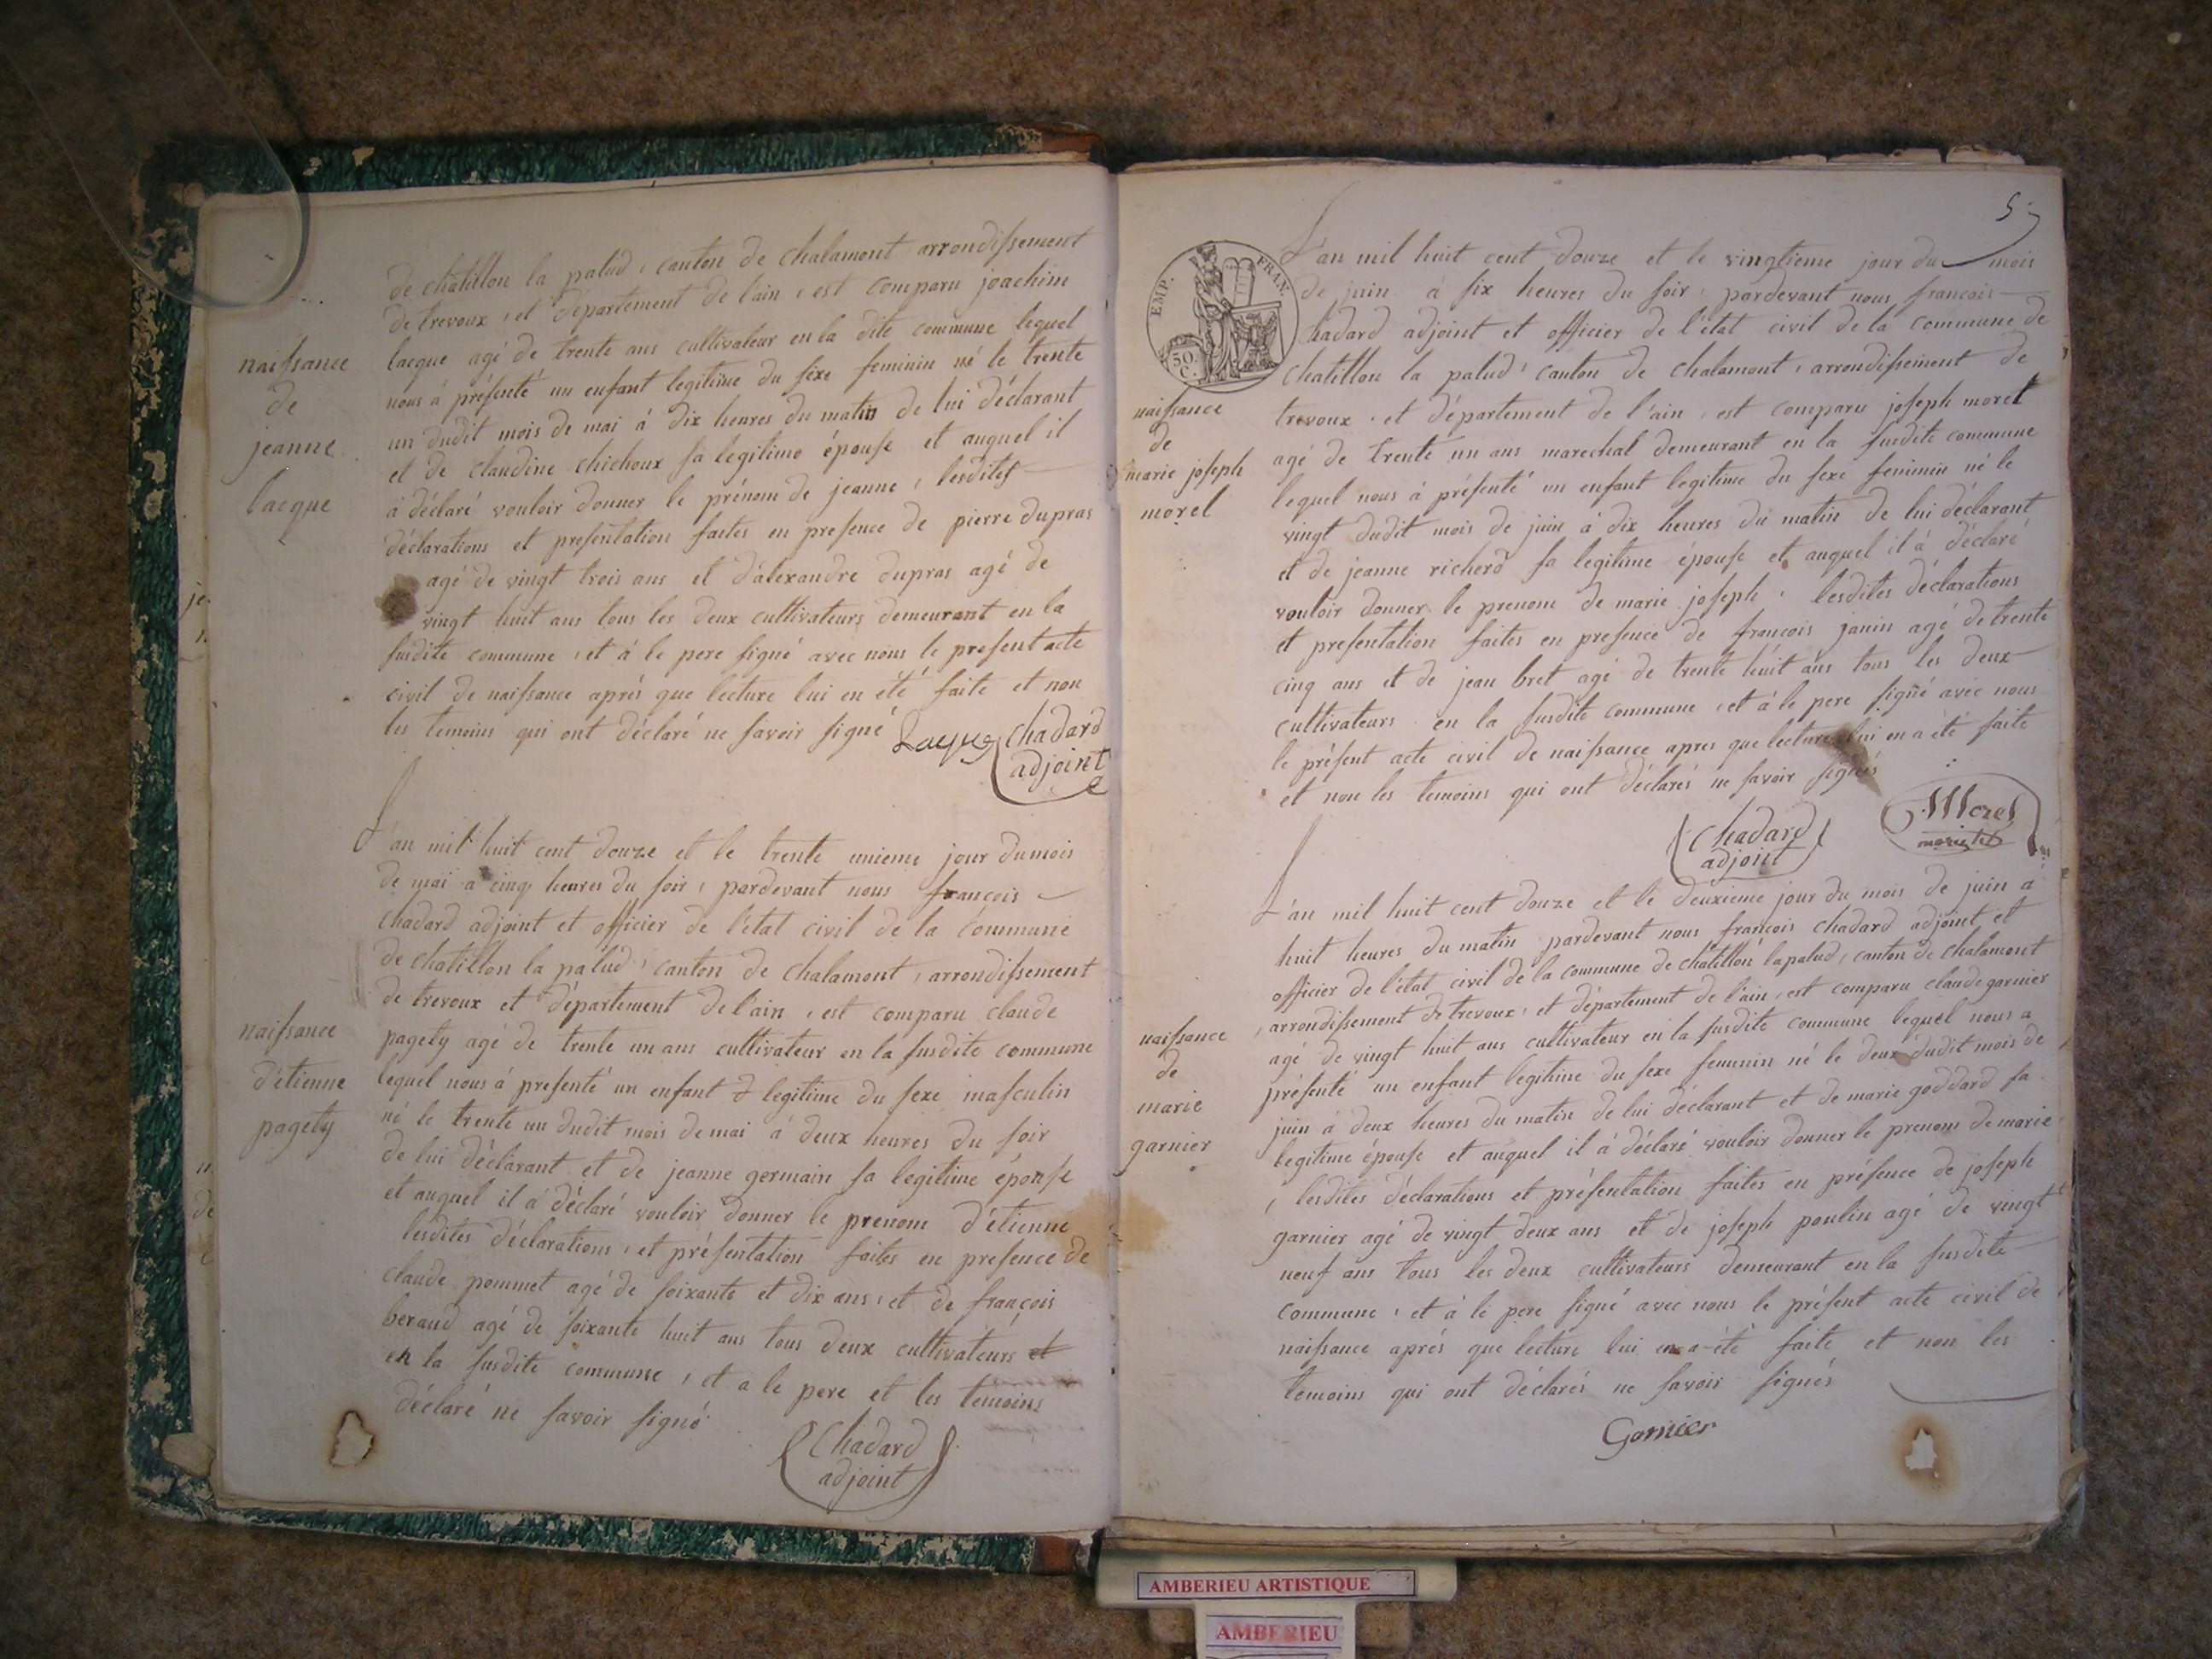 de chatillon la palud, canton de chalamont arrondissement
de trevoux, et département de l'ain, est comparu joachim
lacque agé de trente ans cultivateur en la dite commune lequel
nous à présenté un enfant legitime du sexe feminin né le trente
un dudit mois de mai à dix heures du matin de lui déclarant
et de claudine chichoux sa legitime épouse et auquel il
à déclaré vouloir donner le prénom de jeanne, lesdites
déclarations et presentation faites en presence de pierre dupras
agé de vingt trois ans et d'alexandre dupras agé de
vingt huit ans tous les deux cultivateurs demeurant en la
susdite commune, et à le pere signé avec nous le present acte
civil de naissance après que lecture lui en été faite et non
les temoins qui ont déclaré ne savoir signé
Lacque
Chadard
adjoint
naissance
de
jeanne
lacque
L'an mil huit cent douze et le trente unieme jour du mois
de mai a cinq heures du soir, pardevant nous françois
chadard adjoint et officier de l'état civil de la commune
de chatillon la palud, canton de chalamont, arrondissement
de trevoux et département de l'ain, est comparu claude
pagety agé de trente un ans cultivateur en la susdite commune
lequel nous à presenté un enfant legitime du sexe masculin
né le trente un dudit mois de mai à deux heures du soir
de lui déclarant et de jeanne germain sa legitime épouse
et auquel il a déclaré vouloir donner le prenom d'étienne
lesdites déclarations, et présentation faites en presence de
claude pommet agé de soixante et dix ans, et de françois
beraud agé de soixante huit ans tous deux cultivateurs et
en la susdite commune, et a le pere et les temoins
déclaré ne savoir signé
Chadard
adjoint
naissance
d'étienne
pagety
5
EMP. FRAN.
50
C.
L'an mil huit cent douze et le vingtieme jour du mois
de juin à six heures du soir, pardevant nous françois
chadard adjoint et officier de l'état civil de la commune de
chatillon la palud, canton de chalamont, arrondissement de
trevoux, et département de l'ain, est comparu joseph morel
agé de trente un ans marechal demeurant en la susdite commune
lequel nous à présenté un enfant legitime du sexe feminin né le
vingt dudit mois de juin à dix heures du matin de lui déclarant
et de jeanne richerd sa legitime épouse et auquel il à déclaré
vouloir donner le prenom de marie joseph, lesdites déclarations
et presentation faites en presence de françois janin agé de trente
cinq ans et de jean bret agé de trente huit ans tous les deux
cultivateurs en la susdite commune, et à le pere signé avec nous
le présent acte civil de naissance apres que lecture lui en a été faite
et non les temoins qui ont déclarés ne savoir signés
Chadard
adjoint
Morel
naissance
de
marie joseph
morel
L'an mil huit cent douze et le deuxieme jour du mois de juin a
huit heures du matin pardevant nous françois chadard adjoint et
officier de l'état civil de la commune de chatillon lapalud, canton de chalamont
, arrondissement de trevoux, et département de l'ain, est comparu claude garnier
agé de vingt huit ans cultivateur en la susdite commune lequel nous a
présenté un enfant legitime du sexe femenin né le deux dudit mois de
juin à deux heures du matin de lui déclarant et de marie goddard sa
legitime épouse et auquel il à déclaré vouloir donner le prenom de marie
, lesdites déclarations et présentation faites en présence de joseph
garnier agé de vingt deux ans et de joseph poulin agé de vingt
neuf ans tous les deux cultivateurs demeurant en la susdite
commune, et à le pere signé avec nous le présent acte civil de
naissance aprés que lecture lui en a été faite et non les
temoins qui ont déclarés ne savoir signés
Garnier
naissance
de
marie
garnier
AMBERIEU ARTISTIQUE
AMBERIEU